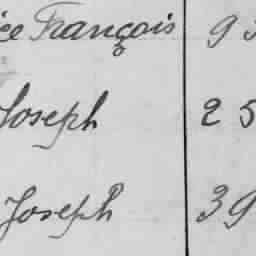 François 9
Joseph 25
Joseph 39